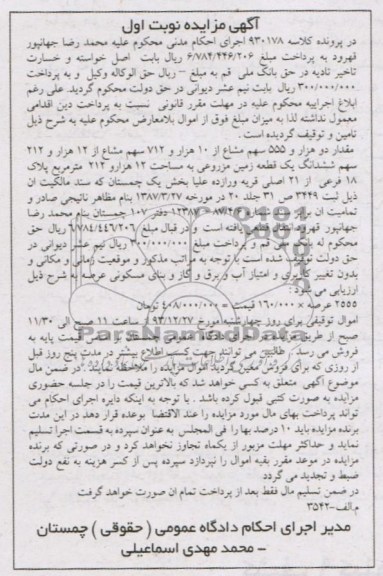 آگهی مزایده نوبت اول
در پرونده کلاسه ۹۳۰۱۷۸ اجرای احکام مدنی محکوم علیه محمد رضا جهانپور
قهرود به پرداخت مبلغ ۶/۷۸۴/۴۴۶/۲۰۶ ریال بابت اصل خواسته و خسارت
تاخیر تادیه در حق بانک ملی قم به مبلغ – ریال حق الوکاله وکیل و به پرداخت
۳۰۰/۰۰۰/۰۰۰ ریال بابت نیم عشر دیوانی در حق دولت محکوم گردید. علی رغم
ابلاغ اجراییه محکوم علیه در مهلت مقرر قانونی نسبت به پرداخت دین اقدامی
معمول نداشته لذا به میزان مبلغ فوق از اموال بلامعارض محکوم علیه به شرح ذیل
تامین و توقیف گردیده است.
مقدار دو هزار و ۵۵۵ سهم مشاع از ۱۰ هزار و ۷۱۲ سهم مشاع از ۱۲ هزار و ۲۱۲
سهم ششدانگ یک قطعه زمین مزروعی به مساحت ۱۲ هزارو ۲۱۲ مترمربع پلاک
۱۸ فرعی از ۲۱ اصلی قریه ورازده علیا بخش یک چمستان که سند مالکیت ان
ذیل ثبت ۳۴۴۹ ص ۳۱ جلد ۲۰ در مورخه ۱۳۸۷/۳/۲۷ بنام مظاهر نائیجی صادر و
تمامیت ان برابر سند دفتر ۱۰۷ چمستان بنام محمد رضا
جهانپور قهرود انتقال قطعی یافته است و در قبال مبلغ ۶/۷۸۴/۴۴۶/۲۰۶ ریال حق
محکوم له بانک ملی قم و پرداخت مبلغ ۳۰۰/۰۰۰/۰۰۰ ریال نیم عشر دیوانی در
حق دولت توقیف شده است با توجه به مراتب مذکور و موقعیت زمانی و مکانی و
بدون تغییر کاربری و امتیاز آب و برق و گاز و بنای مسکونی عرصه به شرح ذیل
ارزیابی می شود:
۲۵۵۵ عرصه × ۱۶۰/۰۰۰ قیمت = ۴۰۸/۰۰۰/۰۰۰ تومان
اموال توقیفی برای روز چهارشنبه مورخ ۹۳/۱۲/۲۷ از ساعت ۱۱ صبح الی ۱۱/۳۰
صبح از طریق مزایده در اجرای دادگاه عمومی چمستان با همین قیمت پایه به
فروش می رسد. طالبین می توانند جهت کسب اطلاع بیشتر در مدت پنج روز قبل
از روزی که برای فروش معین گردید اموال مزایده را ملاحظه نمایند. در ضمن مال
موضوع اگهی متعلق به کسی خواهد شد که بالاترین قیمت را در جلسه حضوری
مزایده به صورت کتبی قبول کرده باشد. با توجه به اینکه دایره اجرای احکام می
تواند پرداخت بهای مال مورد مزایده را عند الاقتضا بوعده قرار دهد در این مدت
برنده مزایده باید ۱۰ درصد بها را فی المجلس به عنوان سپرده به قسمت اجرا تسلیم
نماید و حداکثر مهلت مزبور از یکماه تجاوز نخواهد کرد و در صورتی که برنده
مزایده در موعد مقرر بقیه اموال را نپردازد سپرده پس از کسر هزینه به نفع دولت
ضبط و تجدید می گردد
در ضمن تسلیم مال فقط بعد از پرداخت تمام ان صورت خواهد گرفت
م.الف-۳۵۴۲
مدیر اجرای احکام دادگاه عمومی ( حقوقی ) چمستان
– محمد مهدی اسماعیلی